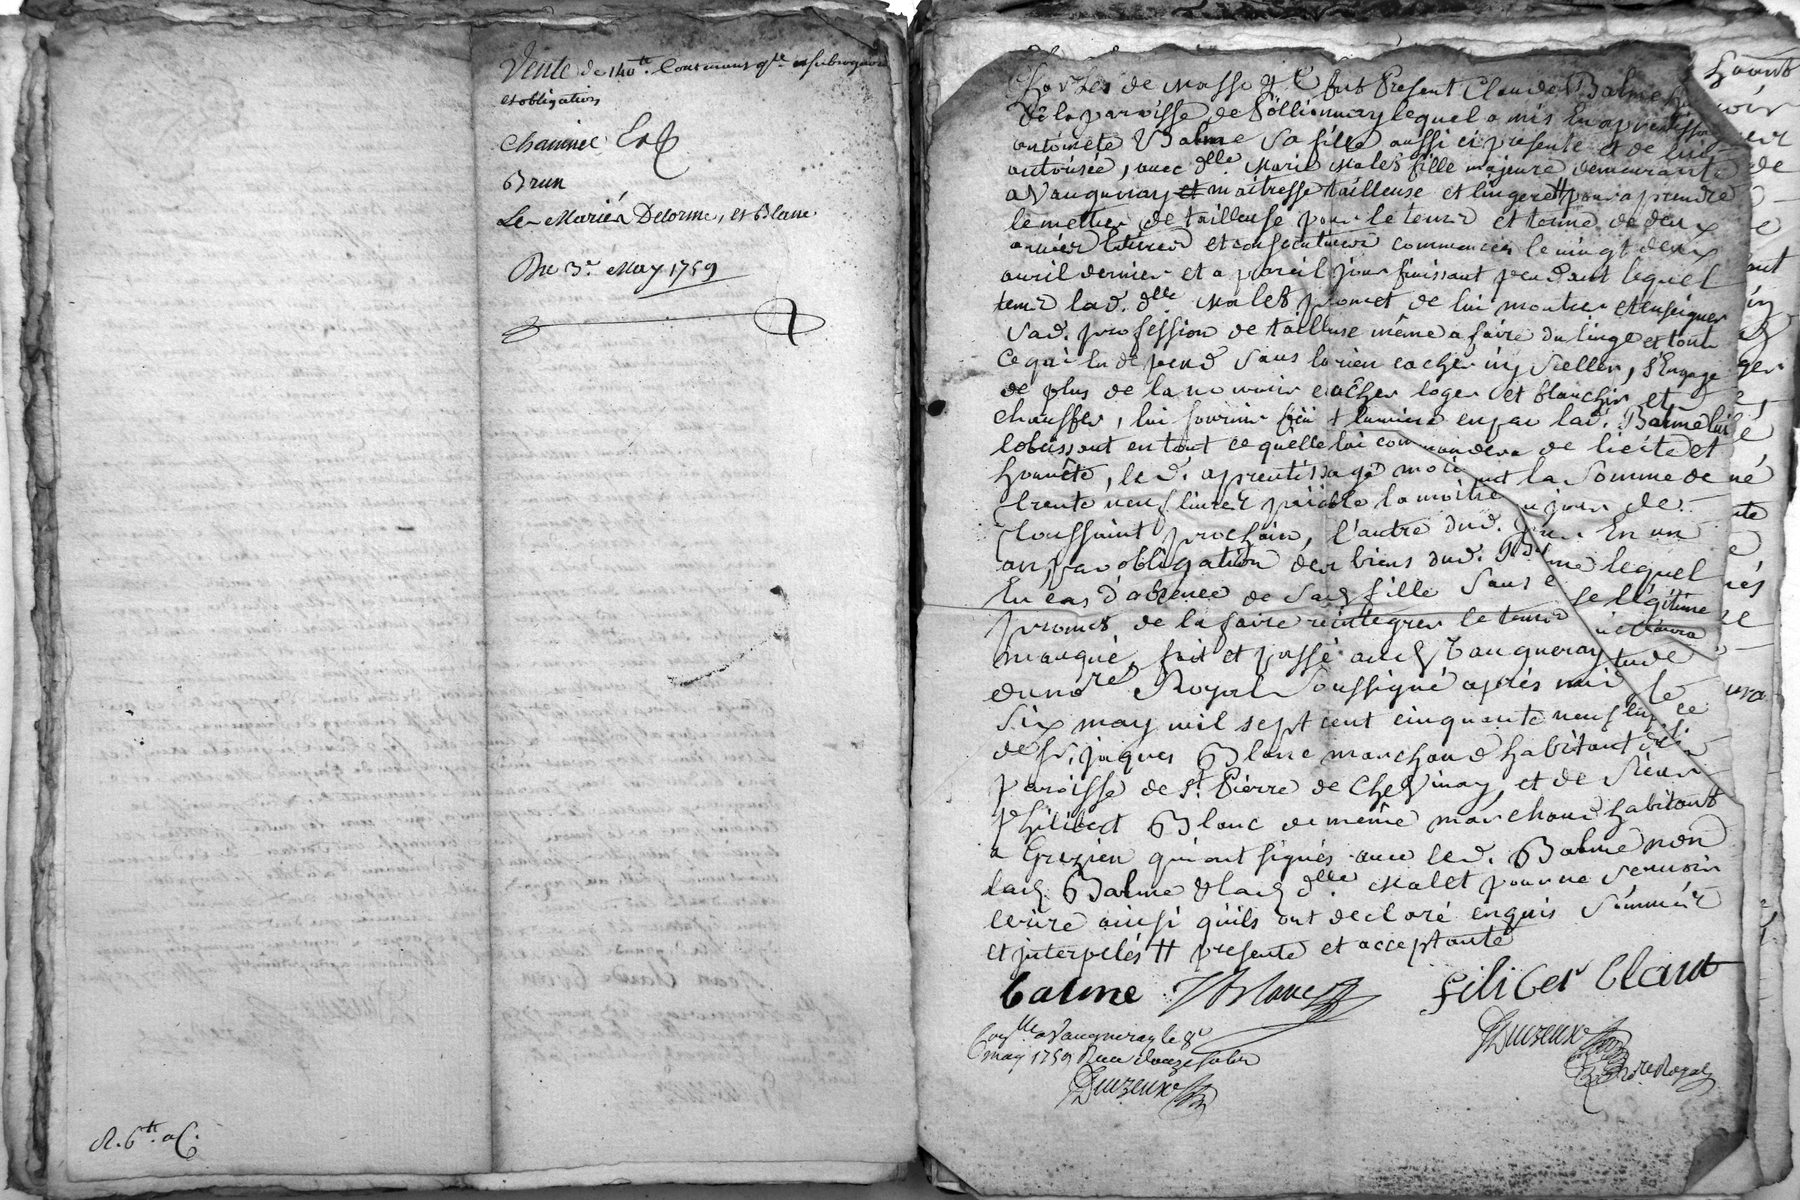 Vente de 140 tt contenant qte et subrogaon
et obligation
Chaminet
Brun
Les Mariés Delorme, et Blanc
Du 3e May 1759
R. 6 tt. a C.
fut Present Claude Balme
de la paroisse de Pollionnay lequel a mis en aprentissa
antoinete Balme sa fille aussi ci presente et de lui
autorisée, avec dlle. Marie Malet fille majeure demeurante
a Vaugneray et maitresse tailleuse et lingere # pour aprendre
le mettier de tailleuse pour le tems et terme de deux
années entieres et consecutives commencées le vingt deux
avril dernier et a pareil jour finissant pendant lequel
tems lad. dlle. Malet promet de lui montrer et enseigner
sad. profession de tailleuse même a faire du linge et tout
ce qui en depend sans lui rien cacher ni sceller, s'Engage
de plus de la nourrir coucher loger et blanchir et
chauffer, lui fournir feu et lumiere en par lad. Balme lui
lobeissant en tout ce quelle lui commandera de licite et
honnête, le d. aprentissage moienant la somme de
trente neuf livres païable la moitié au jour de
toussaint prochain, l'autre dud. jour En un
an, par obligation des biens dud. Balme lequel
En cas d'absence de sad fille sans cause legitime
promet de la faire reintegrer le tems quelle aura
manqué, fait et passé aud Vaugneray etude
du nore Royal soussigné après midi le
six may mil sept cent cinquante neuf en presence
de sr. jaques Blanc marchand habitant de la
paroisse de St. Pierre de Chevinay, et de sieur
philibert Blanc de même marchand habitant
a Grezien qui ont signés avec led. Balme non
lad. Balme & lad dlle. Malet pour ne sçavoir
ecrire ainsi qu'ils ont declaré enquis sommées
et interpelés # presente et acceptante
balme J Blanc filiber blanc
Duzeux
nore Royal
Conlle a Vaugneray le 8e
may 1759 Recu douze sols
Duzeux